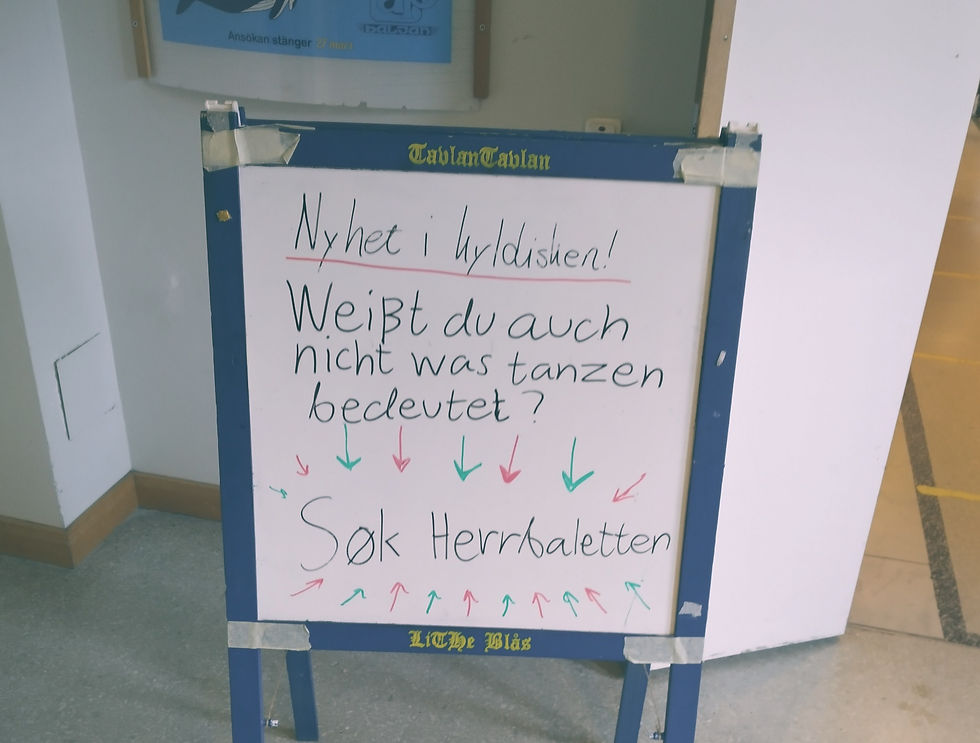 Ansökan stänger 27 april
BALJAN
TavlanTavlan
Nyhet i kyldisken!
Weißt du auch
nicht was tanzen
bedeutet?
Søk Herrbaletten
LiTHe Blås